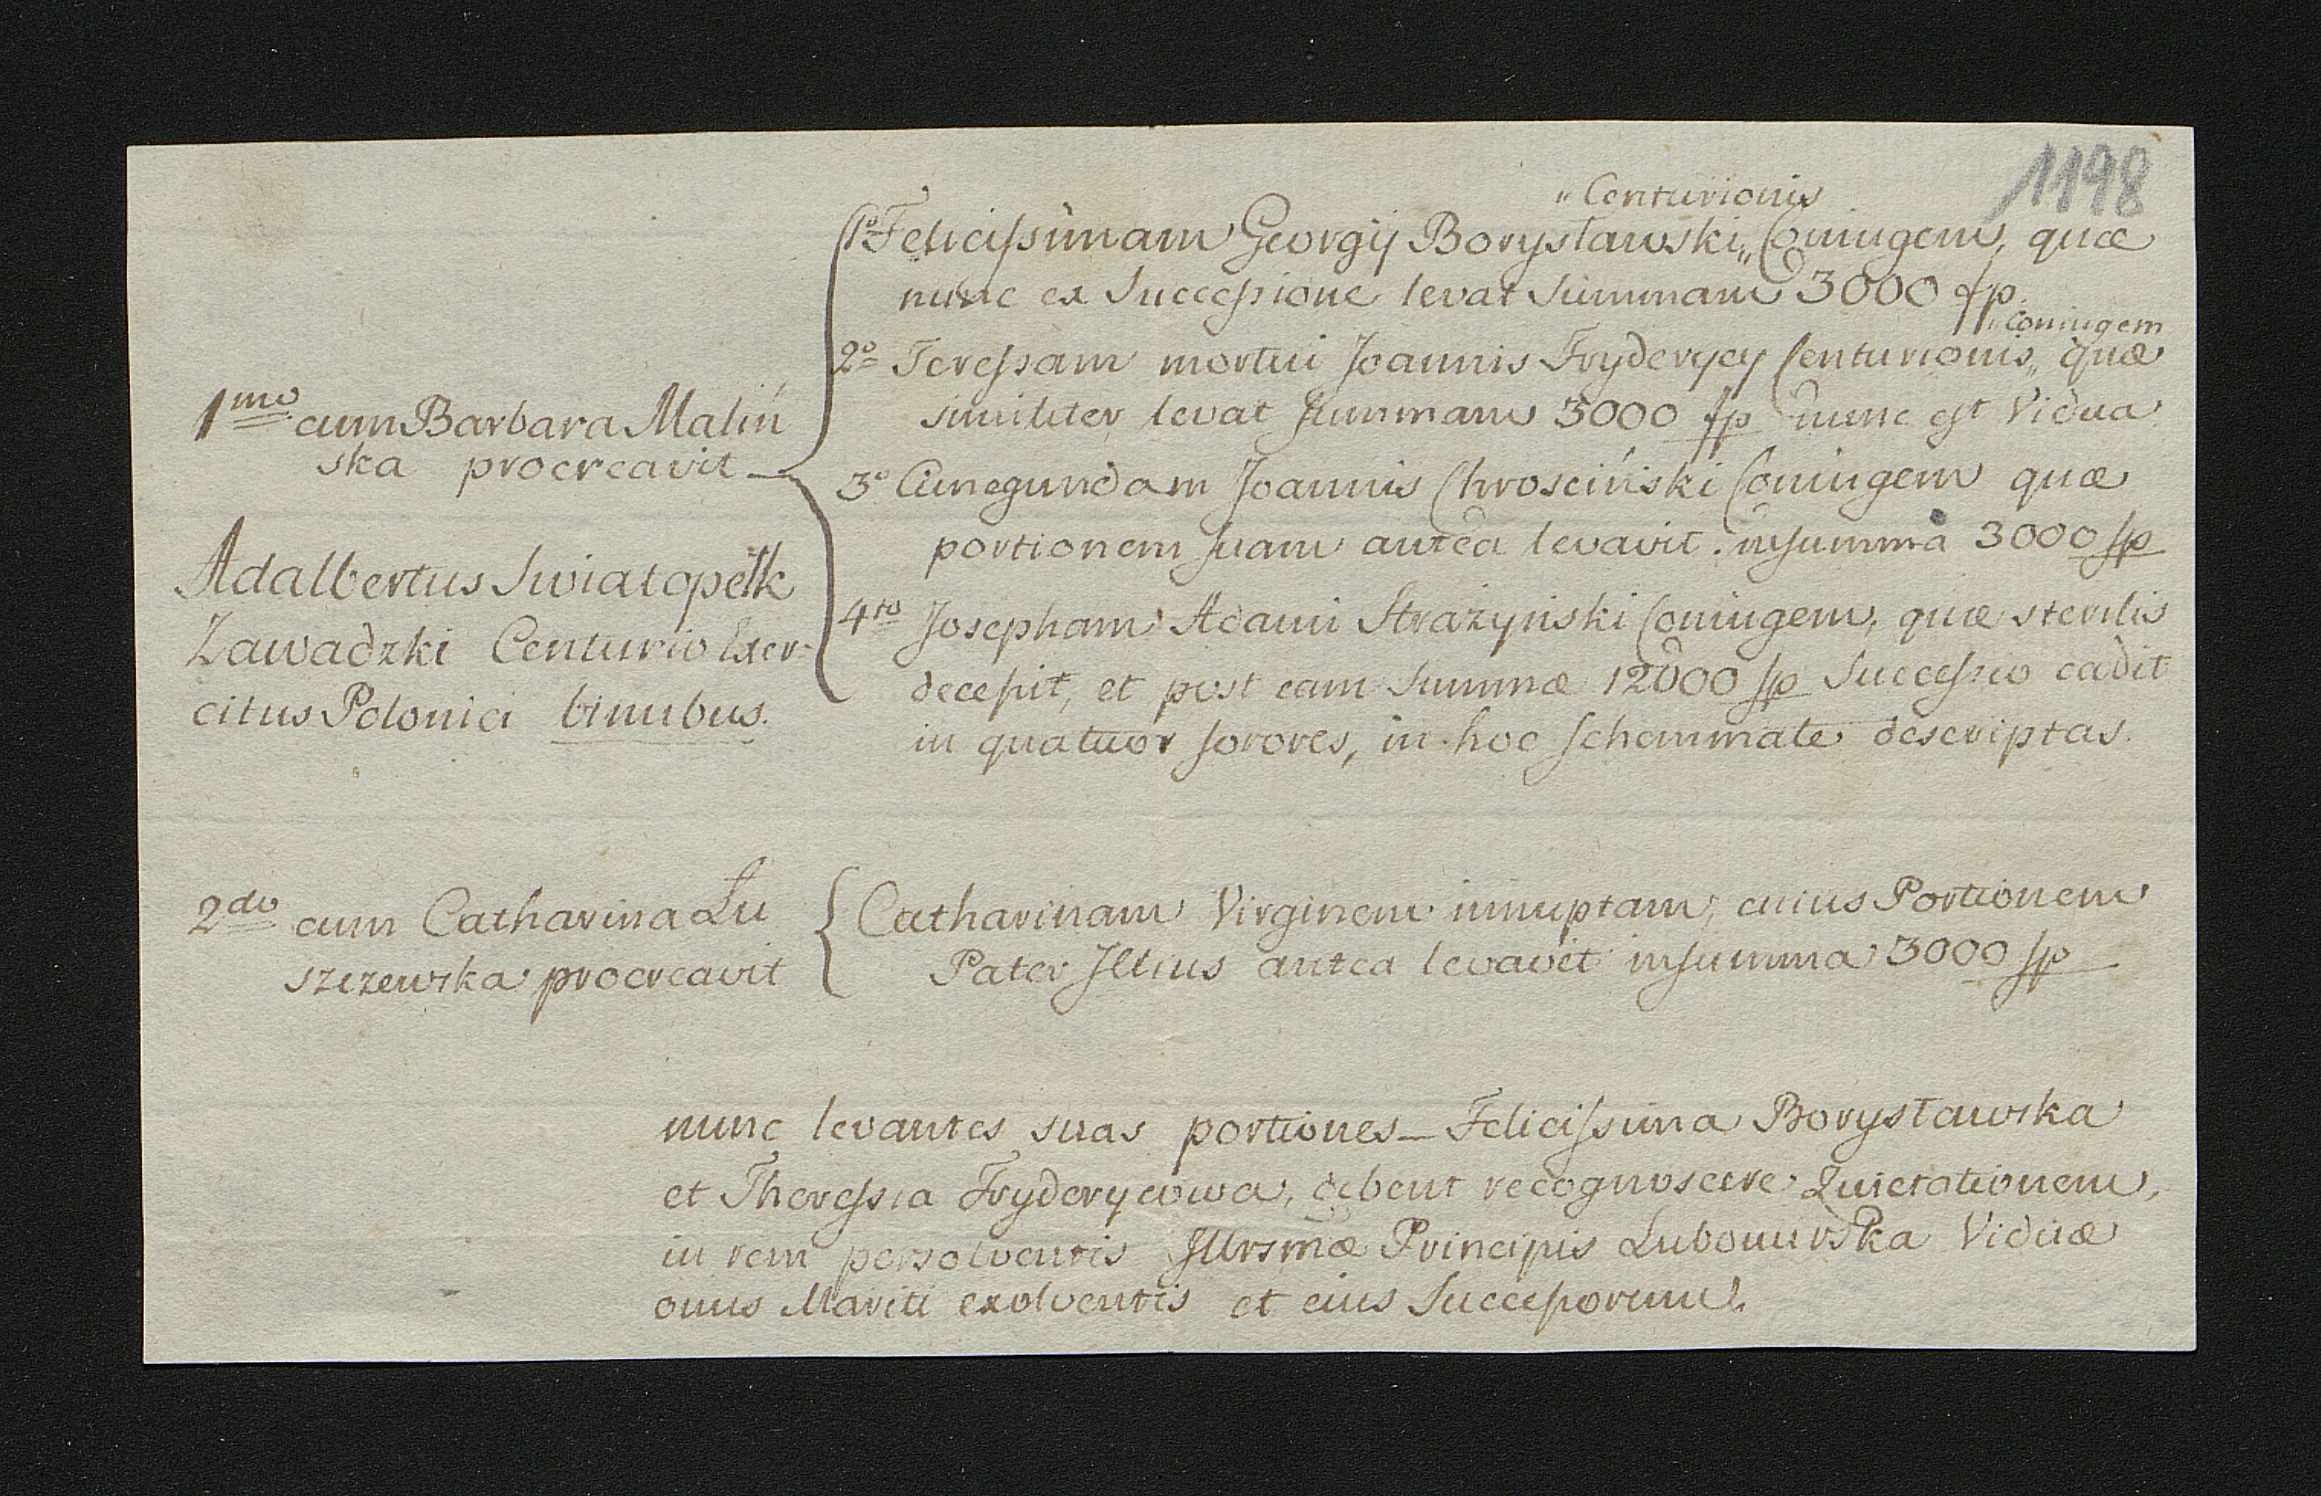 1198
1mo cum Barbara Maliń
ska procreavit
Adalbertus Swiatopełk
Zawadzki Centurio Exer-
citus Polonici binubus.
"Centurionis
1o Felicissimam Georgij Borysławski,, Coniugem, quæ
nunc ex Successione levat Summam 3000 fp.
"Coniugem
2o Teressam mortui Joannis Fryderycy Centurionis,, quæ
similiter levat Summam 3000 fp nunc est Vidua
3o Cunegundam Joannis Chrosciński Coniugem quæ
portionem suam antea levavit in summa 3000 fp
4to Josepham Adami Strażyński Coniugem, quæ sterilis
decessit, et post eam Summæ 12000 fp Successio cadit
in quatuor sorores, in hoc schemmate descriptas.
2do cum Catharina Lu
szczewska procreavit
Catharinam Virginem innuptam, cuius Portionem
Pater Illius antea levavit in summa 3000 fp
nunc levantes suas portiones – Felicissima Borysławska
et Theressia Fryderycowa, debent recognoscere Quietationem,
in rem persolventis Illrsmæ Principis Lubomirska Viduæ
onus Mariti exolventis et eius Successorum.